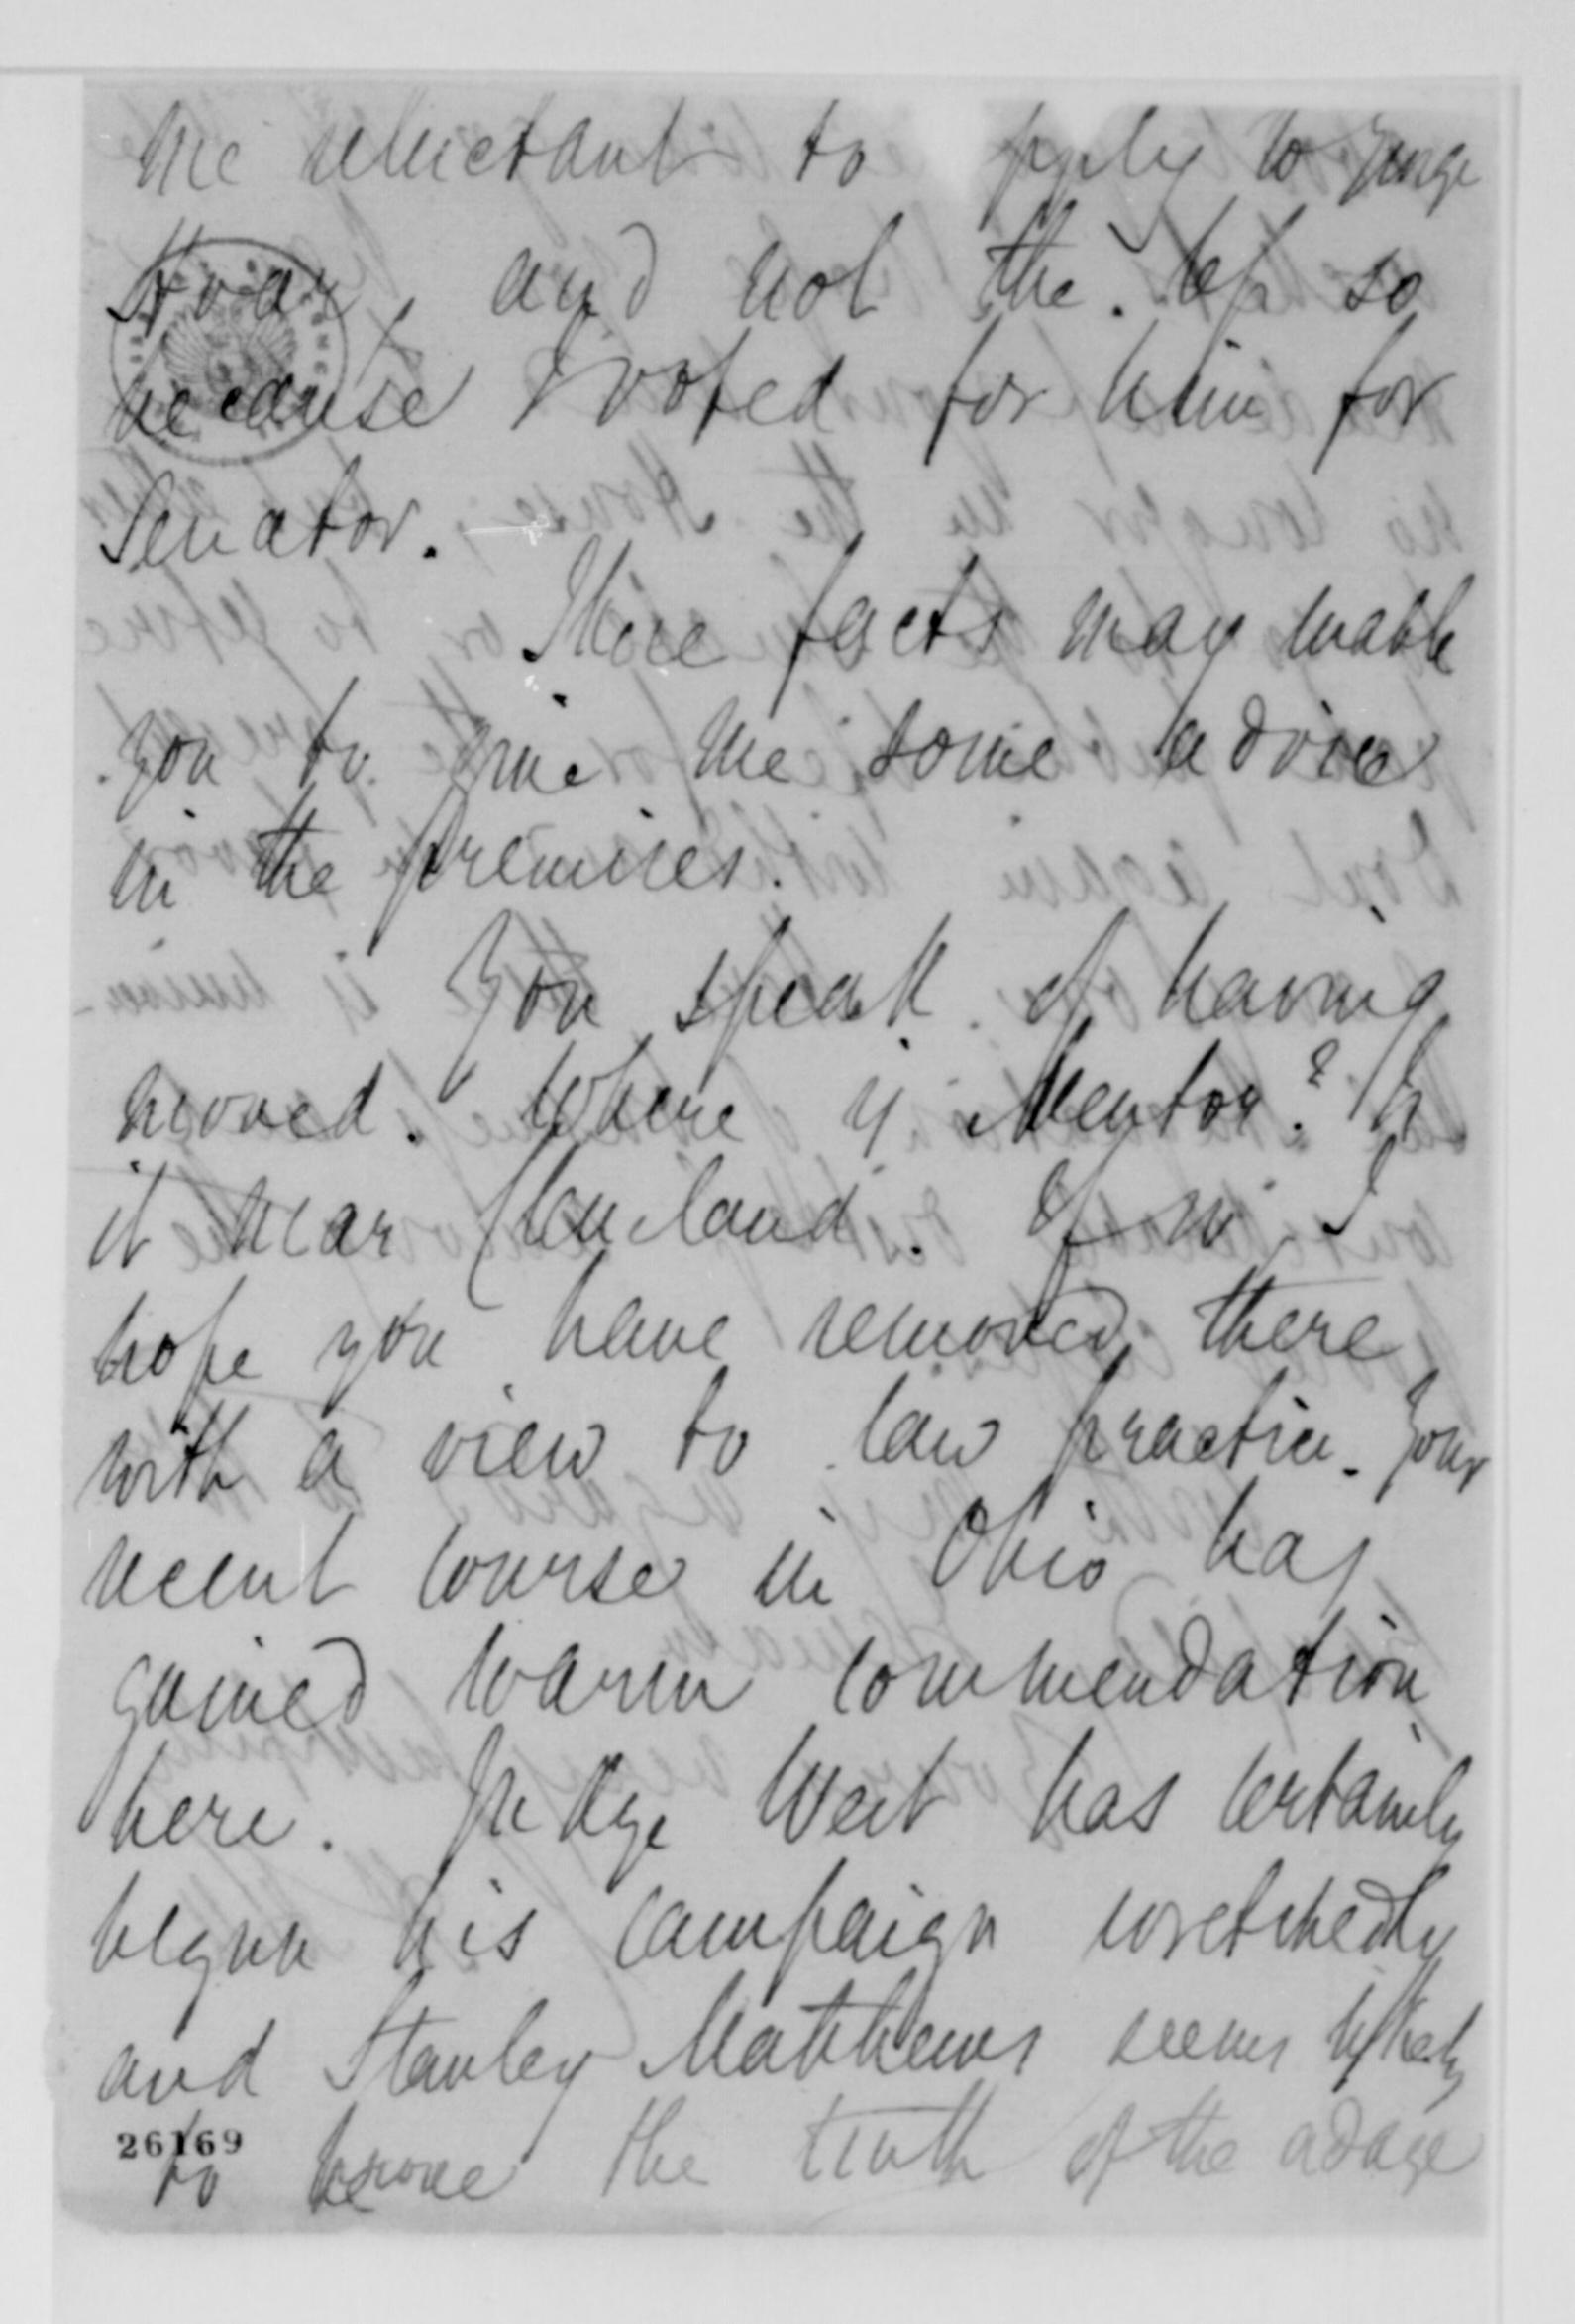 me reluctant to apply to Judge
Hoar, and not the less so
because I voted for him for
Senator.
These facts may enable
you to give me some advice
in the premises.
You speak of having
moved. Where is Mentor? Is
it near Cleveland. If so I
hope you have removed there
with a view to law practice. Your
recent course in Ohio has
gained warm commendation
here. Judge West has certainly
begun his campaign wretchedly
and Stanley Matthews seems likely
to prove the truth of the adage
26169